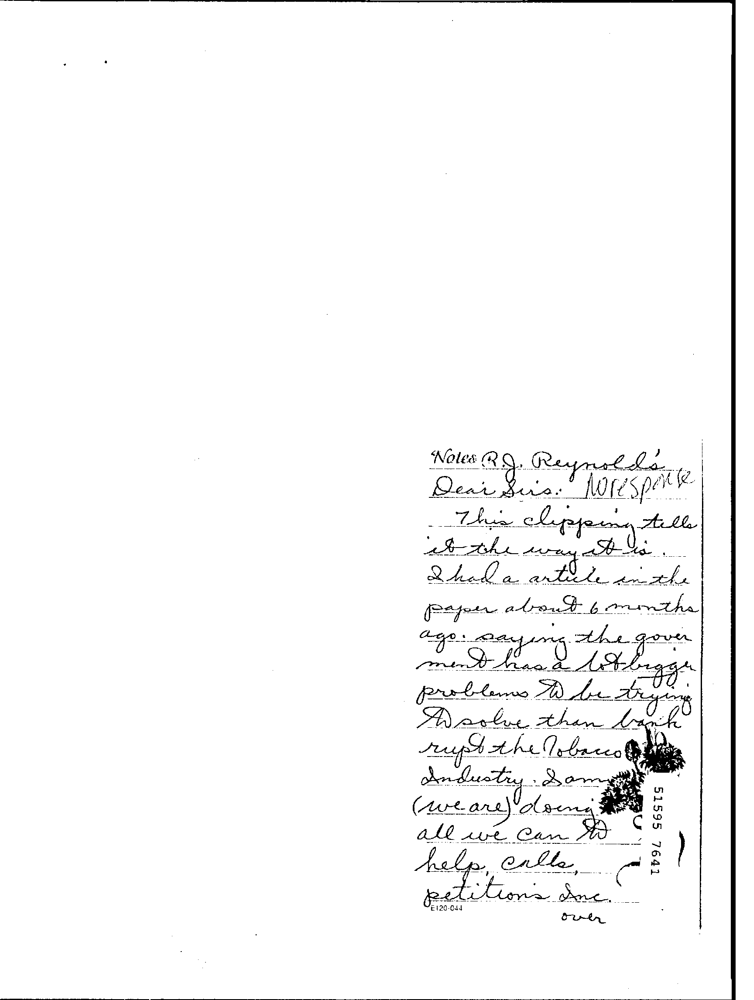 Notes R.J. Reynold's
Dear Sirs: No response
This clipping tells
it the way it is.
I had a article in the
paper about 6 months
ago. saying the gover
ment has a lot bigger
problems to be trying
to solve than bank
rupt the Tobacco
Industry. I am
(we are) doing
all we can to
help, calls,
petition's Inc.
E120-044
over
51595 7641